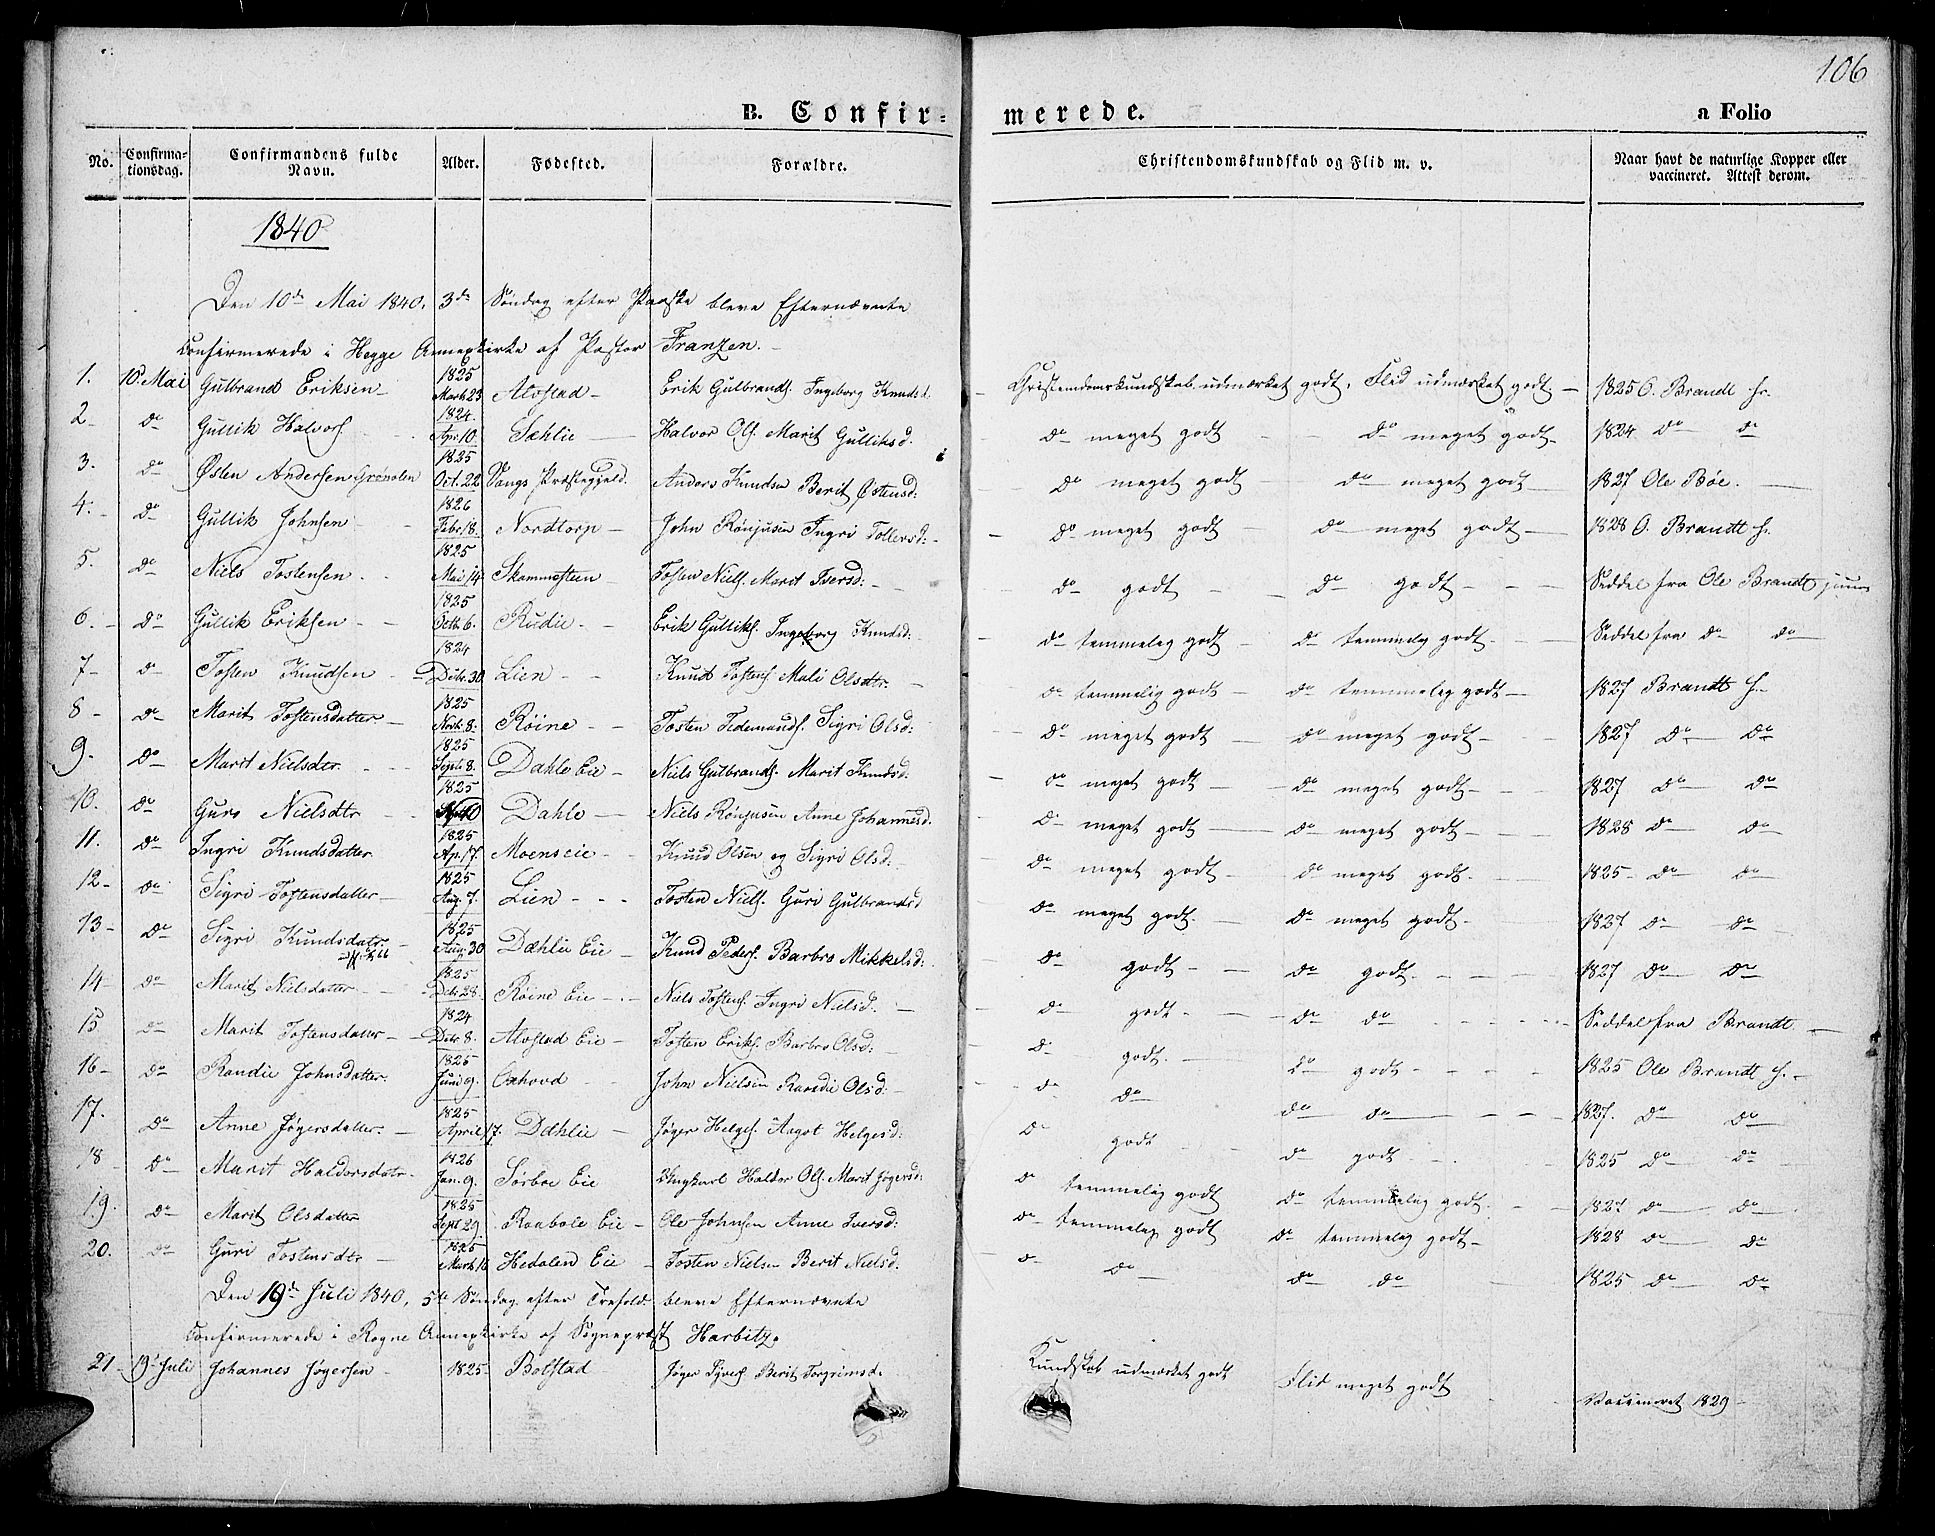 106
B. Confirmerede. a Folio
No. Confirmationsdag. Confirmandens fulde Navn. Alder. Fødested. Forældre. Christendomskundskab og Flid m. v. Naar havt de naturlige Kopper eller vaccineret. Attest derom.
1840
Den 10de Mai 1840, 3de Søndag efter Paaske bleve Efternævnte
Confirmerede i Hegge Annexkirke af Pastor Franzen.
1. 10. Mai Gulbrand Eriksen 1825 Marts 23 Alvstad Erik Gulbrands. Ingeborg Knudsd. Christendomskundskab udmærket godt, Flid udmærket godt. 1825 O. Brandt
2 do Gullik Halvors. 1824. Apr. 10. Sæhlie Halvor Ols. Marit Gulliksd. do meget godt do meget godt 1824 do do
3. do Østen Andersen Grønolen 1825 Oct. 22 Vangs Præstegjeld. Anders Knudsen Berit Østensd: do meget godt do meget godt 1827 Ole Bøe.
4. do Gullik Johnsen 1826 Febr. 18. Nordtorp John Rønjusen Ingri Tollevsd: do meget godt do meget godt 1828 O. Brandt
5. do Niels Tostensen 1825 Mai 14 Skammesteen Tosten Niels. Marit Iversd: do godt do godt Seddel fra Ole Brandt junior
6. do Gullik Eriksen 1825 Octb. 6. Rudie Erik Gulliks. Ingeborg Knudsd: do temmelig godt do temmelig godt Seddel fra do do
7 do Tosten Knudsen 1824 Decbr. 30 Lien Knud Tostens. Mali Olsdtr. do temmelig godt do temmelig godt 1827 Brandt
8 do Marit Tostensdatter 1825 Novb. 8. Røine Tosten Tidemands. Sigri Olsd: do meget godt do meget godt 1827 do do
9. do Marit Nielsdtr. 1825 Septb. 8. Dahle Eie Niels Gulbrands. Marit Knudsd: do meget godt do meget godt 1827 do do
10. do Guro Nielsdtr 1825 Dahle Niels Rønjusen Anne Johannesd. do meget godt do meget godt 1828 do do
11. do Ingri Knudsdatter 1825 Ap. 17. Moenseie Knud Olsen og Sigri Olsd: do meget godt do meget godt 1825 do do
12 do Sigri Tostensdatter 1825 Aug. 7. Lien Tosten Niels. Guri Gulbrandsd do meget godt. do meget godt. 1827 do do
13 do Sigri Knudsdatr 1825 Aug. 30 Dæhlie Eie Knud Peders. Barbro Mikkelsd: do godt do godt. 1827 do do
14 do Marit Nielsdatter 1825 Decbr 28. Røine Eie Niels Tostens. Ingri Nielsd: do godt. do do Seddel fra Brandt.
15 do Marit Tostensdatter 1824 Decbr 8. Alvstad Eie Tosten Eriks. Barbro Olsd: do godt. do godt 1825 Ole Brandt
16 do Randie Johnsdatter 1825 Juni 9. Oxhovd John Nielsen Randie Olsd: do do do do 1827. do do
17. do Anne Jøgersdatter. 1825 April 17. Dæhlie Jøger Helges. Aagot Helgesd: do godt do godt 1825 do do
18 do Marit Haldorsdatr. 1826 Jan. 9. Sørboe Eie Ungkarl Haldor Ols. Marit Jøgersd: do temmelig godt do temmelig godt. 1827 do do
19. do Marit Olsdatter 1825 Sept 29 Raabøle Eie Ole Johnsen Anne Iversd: do temmelig godt do temmelig godt 1828 do do
20. do Guri Tostensdtr 1825 Marts 16 Hedalen Eie Tosten Nielsen Berit Nielsd: do do do do 1825 do do
Den 19de Juli 1840, 5te Søndag efter Trefold: bleve Efternævnte
Confirmerede i Rogne Annexkirke af Sognepræst Harbitz.
21 19 Juli Johannes Jøgersen 1825 Bolstad Jøger Syvers. Berit Torgrimsd. Kundskab udmærket godt Flid meget godt Vaccineret 1829